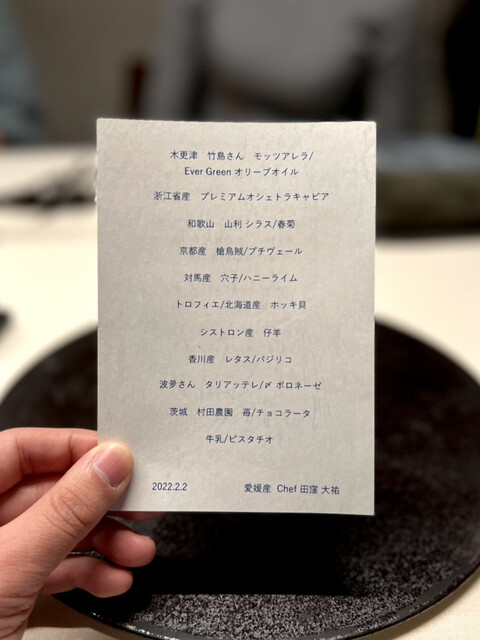 木更津　竹島さん　モッツアレラ/
Ever Green オリーブオイル
浙江省産　プレミアムオシェトラキャビア
和歌山　山利 シラス/春菊
京都産　槍烏賊/プチヴェール
対馬産　穴子/ハニーライム
トロフィエ/北海道産　ホッキ貝
シストロン産　仔羊
香川産　レタス/バジリコ
波夛さん　タリアッテレ/〆 ボロネーゼ
茨城　村田農園　苺/チョコラータ
牛乳/ピスタチオ
2022.2.2　愛媛産 Chef 田窪 大祐